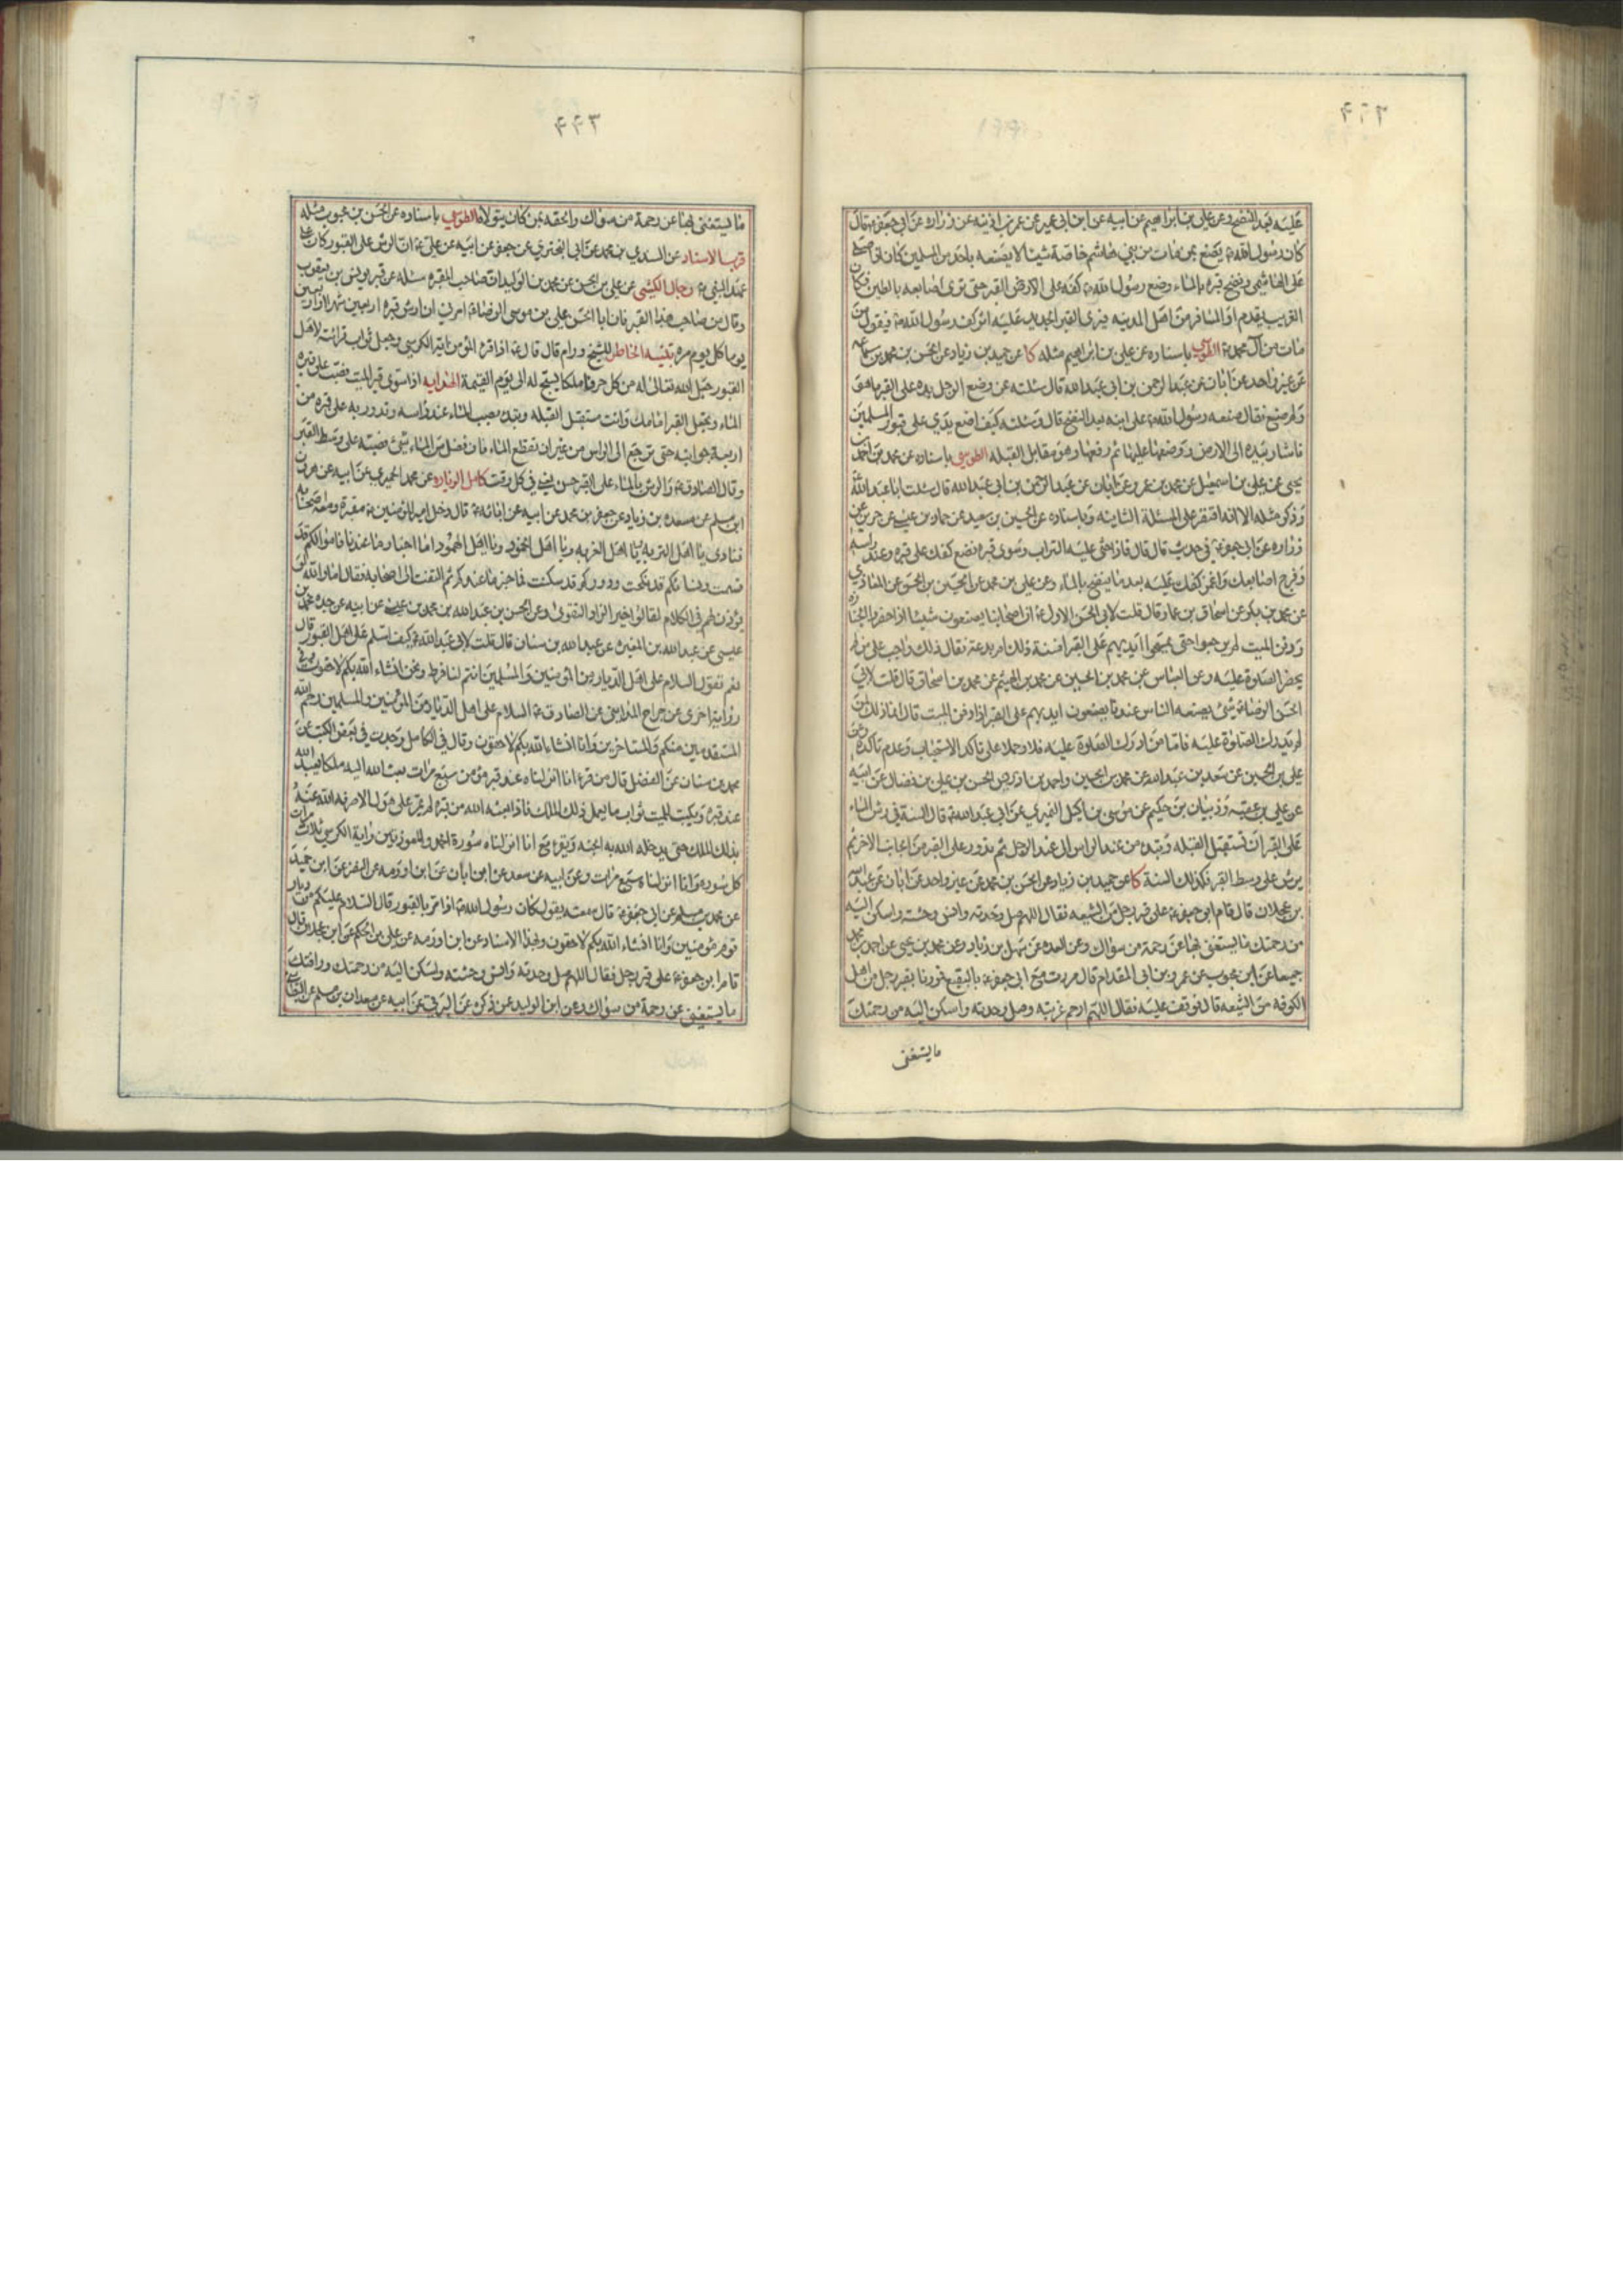 ۴۴۲
عليه بعد النضح وعن علي بن ابراهيم عن ابيه عن ابن ابي عمير عن عمر بن اذينه عن زراره عن ابي جعفر ع قال
كان رسول الله ص يصنع بمن مات من بني هاشم خاصة شيئا لا يصنعه باحد من المسلمين كان اذا صلى
على الهاشمي ونضح قبره بالماء وضع رسول الله ص كفه على الارض القبر حتى ترى اصابعه بالطين فكان
الغريب يقدم او المسافر من اهل المدينه فيرى القبر الجديد عليه اثر كف رسول الله ص فيقول من
مات من آل محمد ص الطوسي باسناده عن علي بن ابراهيم مثله كا عن حميد بن زياد عن الحسن بن محمد بن سماعه
عن غير واحد عن ابان عن عبد الرحمن بن ابي عبد الله قال سئلته عن وضع الرجل يده على القبر ما هو
ولم صنع فقال صنعه رسول الله ص على ابنه بعد النضح قال وسئلته كيف اضع يدي على قبور المسلمين
فاشار بيده الى الارض ووضعها عليها ثم رفعها وهو مقابل القبله الطوسي باسناده عن محمد بن احمد بن
يحيى عن علي بن اسمعيل عن محمد بن عمرو عن ابان عن عبد الرحمن بن ابي عبد الله قال سئلت ابا عبد الله
وذكر مثله الا انه اقتصر على المسئلة الثانيه وباسناده عن الحسين بن سعيد عن حماد بن عيسى عن حريز عن
زراره عن ابي جعفر ع في حديث قال قال فاذا حثي عليه التراب وسوى قبره فضع كفك على قبره عند راسه
وفرج اصابعك واغمز كفك عليه بعد ما ينضح بالماء وعن علي بن محمد عن الحسين بن الحسن عن المنقري
عن محمد بن بكر عن اسحاق بن عمار قال قلت لابي الحسن الاول ع ان اصحابنا يصنعون شيئا اذا حضروا الجنازه
ودفن الميت لم يرجعوا حتى يمسحوا ايديهم على القبر افسنة ذلك ام بدعة فقال ذلك واجب على من لم
يحضر الصلوة عليه وعن العباس عن محمد بن الحسين عن محمد بن الهيثم عن محمد بن اسحاق قال قلت لابي
الحسن الرضا ع شئ يصنعه الناس عندنا يضعون ايديهم على القبر اذا دفن الميت قال انما ذلك لمن
لم يدرك الصلوة عليه فاما من ادرك الصلوة عليه فلا وحملا على تاكد الاستحباب وعدم تاكده وعن
علي بن الحسين عن سعد بن عبد الله عن محمد بن الحسين واحمد بن ادريس الحسن بن علي بن فضال عن ابيه
عن علي بن عقبه وذبيان بن حكيم عن موسى بن اكيل النميري عن ابي عبد الله ع قال السنة في رش الماء
على القبر ان تستقبل القبله وتبدء من عند الراس الى عند الرجل ثم تدور على القبر من الجانب الاخر ثم
يرش على وسط القبر فكذلك السنة كا عن حميد بن زياد عن الحسن بن محمد عن غير واحد عن ابان عن عبد الله
بن عجلان قال قام ابو جعفر ع على قبر رجل من الشيعه فقال اللهم صل وحدته وانس وحشته واسكن اليه
من رحمتك ما يستغنى بها عن رحمة من سواك وعن العده عن سهل بن زياد وعن محمد بن يحيى عن احمد بن محمد
جميعا عن ابن محبوب عن عمرو بن ابي المقدام قال مررت مع ابي جعفر ع بالبقيع فمررنا بقبر رجل من اهل
الكوفه من الشيعه قال فوقف عليه فقال اللهم ارحم غربته وصل وحدته واسكن اليه من رحمتك
ما يستغنى
۴۴۳
ما يستغنى بها عن رحمة من سواك والحقه بمن كان يتولاه الطوسي باسناده عن الحسن بن محبوب مثله
قرب الاسناد عن السندي بن محمد عن ابي البختري عن جعفر عن ابيه عن علي ع ان الرش على القبور كان على
عهد النبي ص رجال الكشي عن علي بن الحسن عن محمد بن الوليد ان صاحب المقبره سئله عن قبر يونس بن يعقوب
وقال من صاحب هذا القبر فان ابا الحسن علي بن موسى الرضا ع امرني ان ارش قبره اربعين شهرا او اربعين
يوما كل يوم مره تنبيه الخاطر للشيخ ورام قال قال ع اذا قرء المؤمن آية الكرسي وجعل ثواب قرائته لاهل
القبور جعل الله تعالى له من كل حرف ملكا يسبح له الى يوم القيمة الهدايه اذا استوى قبر الميت فصب على قبره
الماء وتجعل القبر امامك وانت مستقبل القبله وتبدء بصب الماء عند راسه وتدور به على قبره من
اربعة جوانبه حتى ترجع الى الراس من غير ان تقطع الماء فان فضل من الماء شئ فصبته على وسط القبر
وقال الصادق ع والرش بالماء على القبر حسن يعني في كل وقت كامل الزياره عن محمد الحميري عن ابيه عن هرون
ابن مسلم عن مسعده بن زياد عن جعفر بن محمد عن ابيه عن ابائه ع قال دخل امير المؤمنين ع مقبرة ومعه اصحابه
فنادى يا اهل التربه يا اهل الغربه ويا اهل الخمود ويا اهل الهمود اما اخبار ما عندنا فاموالكم قد
قسمت ونسائكم قد نكحت ودوركم قد سكنت فما خبر ما عندكم ثم التفت الى اصحابه فقال اما والله لو
يؤذن لهم في الكلام لقالوا خير الزاد التقوى وعن الحسن بن عبد الله بن محمد بن عيسى عن ابيه عن جده محمد بن
عيسى عن عبد الله بن المغيره عن عبد الله بن سنان قال قلت لابي عبد الله ع كيف اسلم على اهل القبور قال
نعم تقول السلام على اهل الديار من المؤمنين والمسلمين انتم لنا فرط ونحن انشاء الله بكم لاحقون وفي
رواية اخرى عن جراح المدايني عن الصادق ع السلام على اهل الديار من المؤمنين والمسلمين رحم الله
المستقدمين منكم والمستاخرين وانا انشاء الله بكم لاحقون وقال في الكامل وجدت في بعض الكتب عن
محمد بن سنان عن المفضل قال من قرء انا انزلناه عند قبر مؤمن سبع مرات بعث الله اليه ملكا يعبد الله
عند قبره ويكتب للميت ثواب ما يعمل ذلك الملك فاذا بعثه الله من قبره لم يمر على هول الا صرفه الله عنه
بذلك الملك حتى يدخله الله به الجنه ويقرء مع انا انزلناه سورة الحمد والمعوذتين واية الكرسي ثلاث مرات
كل سوره وانا انزلناه سبع مرات وعن ابيه عن سعد عن ابن ابان عن ابن اورمه عن النضر عن ابن حميد
عن محمد بن مسلم عن ابي جعفر ع قال سمعته يقول كان رسول الله ص اذا مر بالقبور قال السلام عليكم من ديار
قوم مؤمنين وانا انشاء الله بكم لاحقون وبهذا الاسناد عن ابن اورمه عن علي بن الحكم عن ابن عجلان قال
قام ابو جعفر ع على قبر رجل فقال اللهم صل وحدته وانس وحشته واسكن اليه من رحمتك ورافتك
ما يستغنى عن رحمة من سواك وعن ابن الوليد عمن ذكره عن البرقي عن ابيه عن سعدان بن مسلم عن